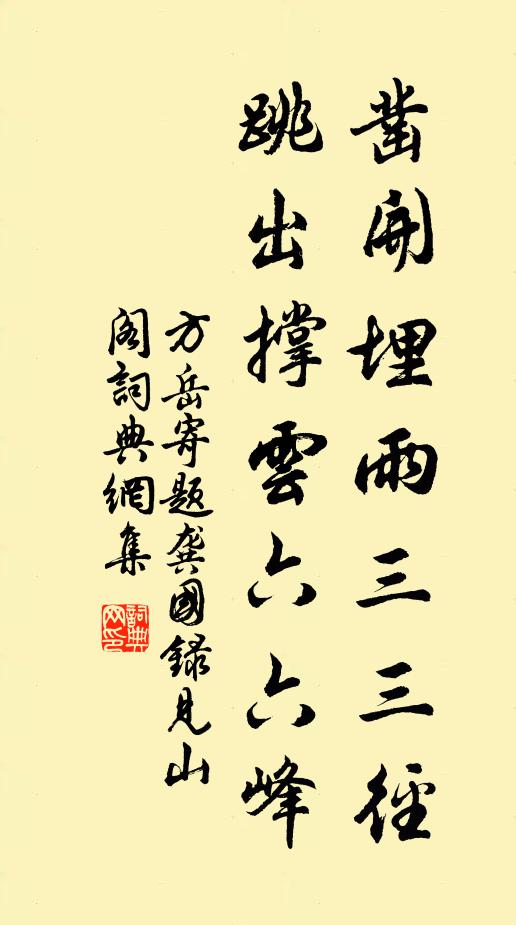 凿開埋雨三三徑
跳出撐雲六六峰
方岳寄题龚國録見山
阁詞典網集
詞典网印